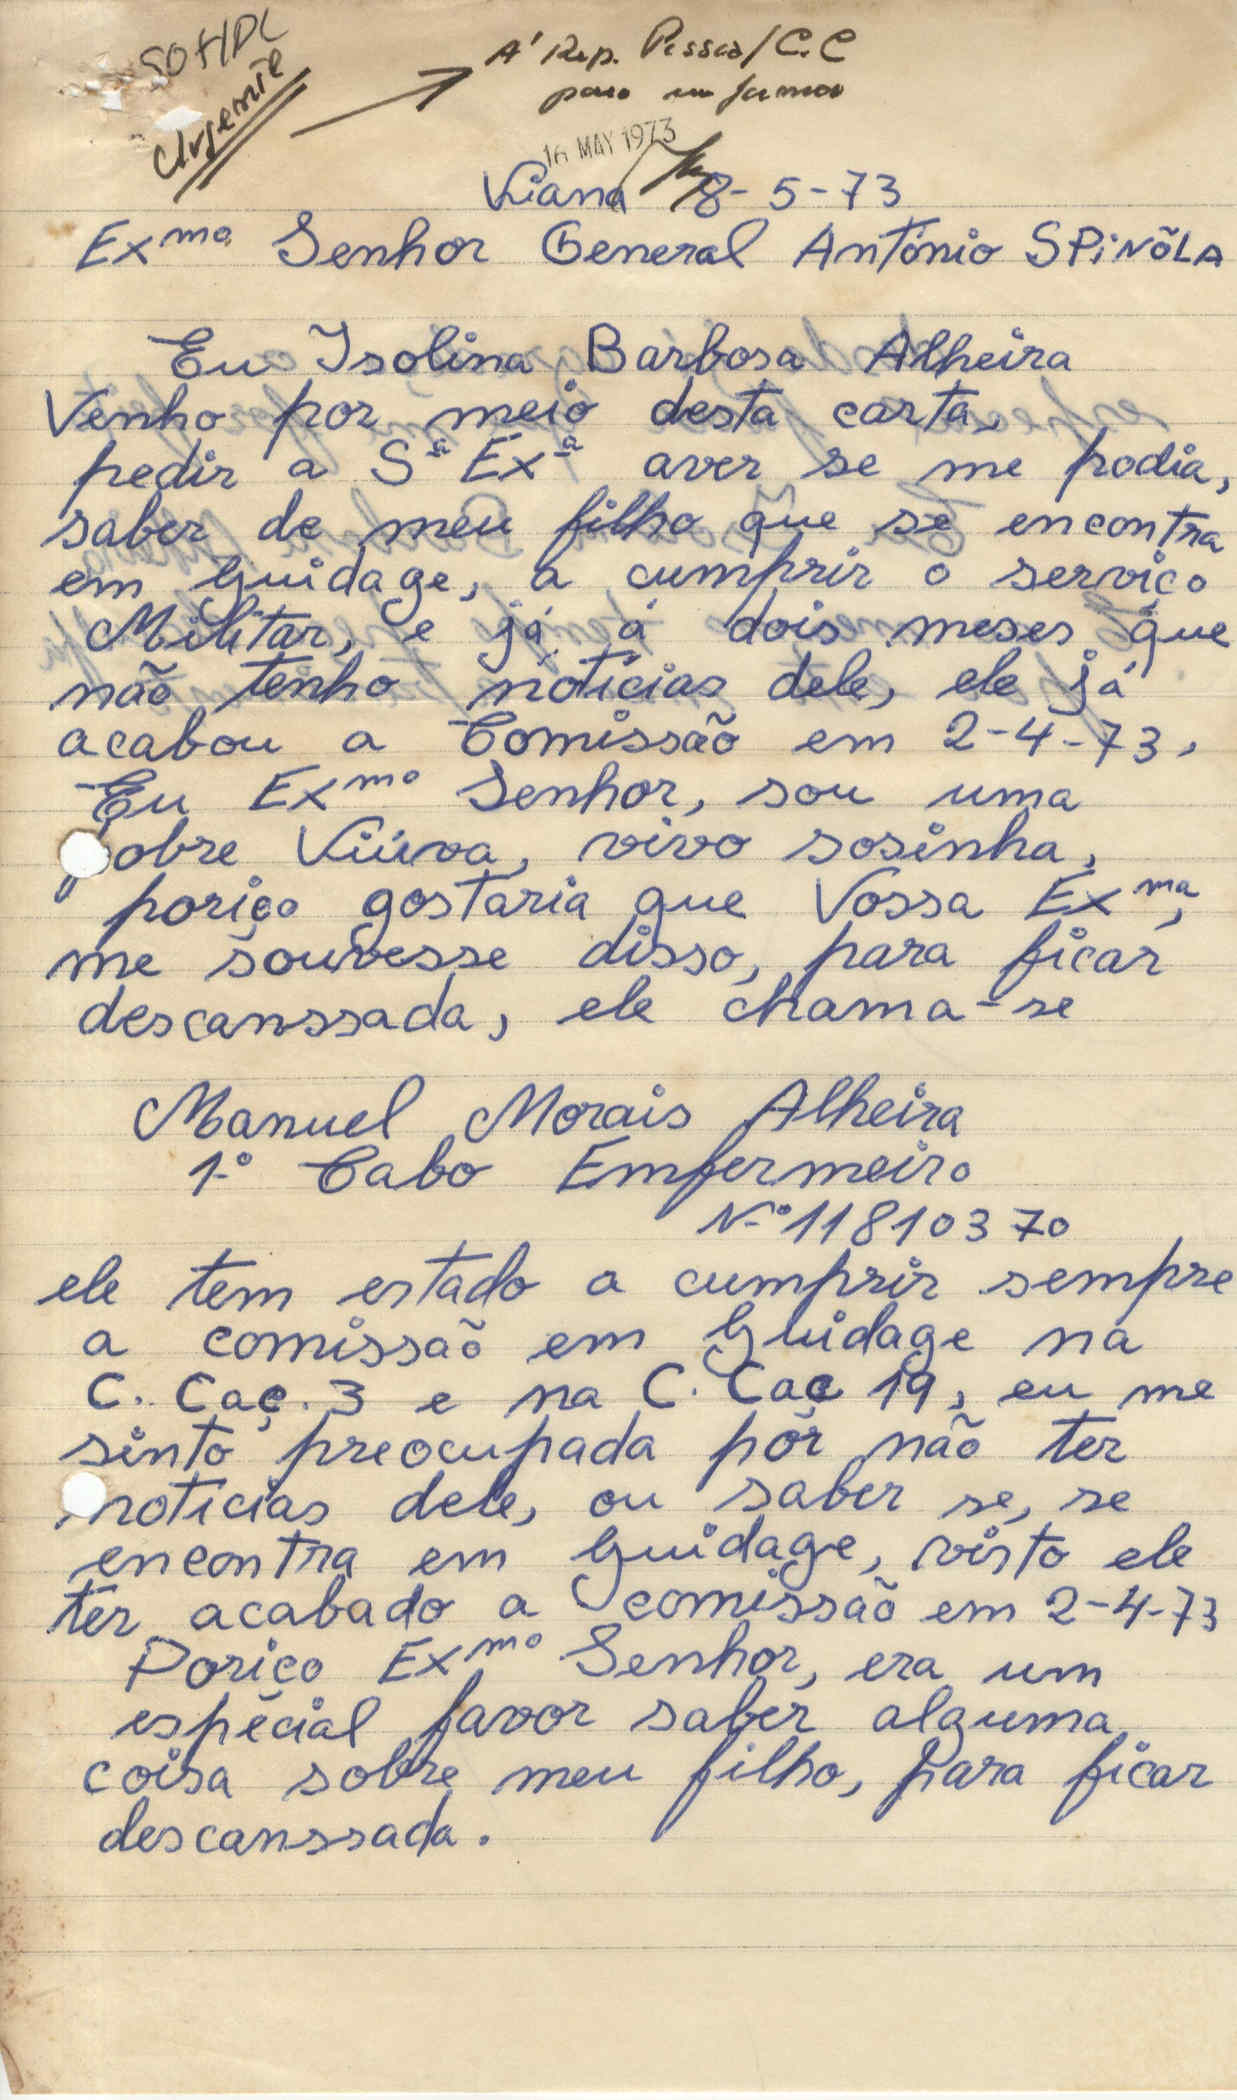 SOF/DL
Urgente
A' Rep. Pessoal/C.C
para informar
16 MAY 1973
Viana 8-5-73
Exmo Senhor General António SPiNÕLA
Eu Isolina Barbosa Alheira
Venho por meio desta carta,
pedir a Sª Exª aver se me podia,
saber de meu filho que se encontra
em Guidage, a cumprir o serviço
Militar, e já á dois meses que
não tenho notícias dele, ele já
acabou a Comissão em 2-4-73,
Eu Exmo Senhor, sou uma
pobre Viúva, vivo sosinha,
poriço gostaria que Vossa Exma,
me souvesse disso, para ficar
descanssada, ele chama-se
Manuel Morais Alheira
1º Cabo Emfermeiro
Nº 11810370
ele tem estado a cumprir sempre
a comissão em Guidage na
C. Caç. 3 e na C. Caç 19, eu me
sinto preocupada pôr não ter
noticias dele, ou saber se, se
encontra em Guidage, visto ele
ter acabado a comissão em 2-4-73
Poriço Exmo Senhor, era um
espécial favor saber alguma
coisa sobre meu filho, para ficar
descanssada.